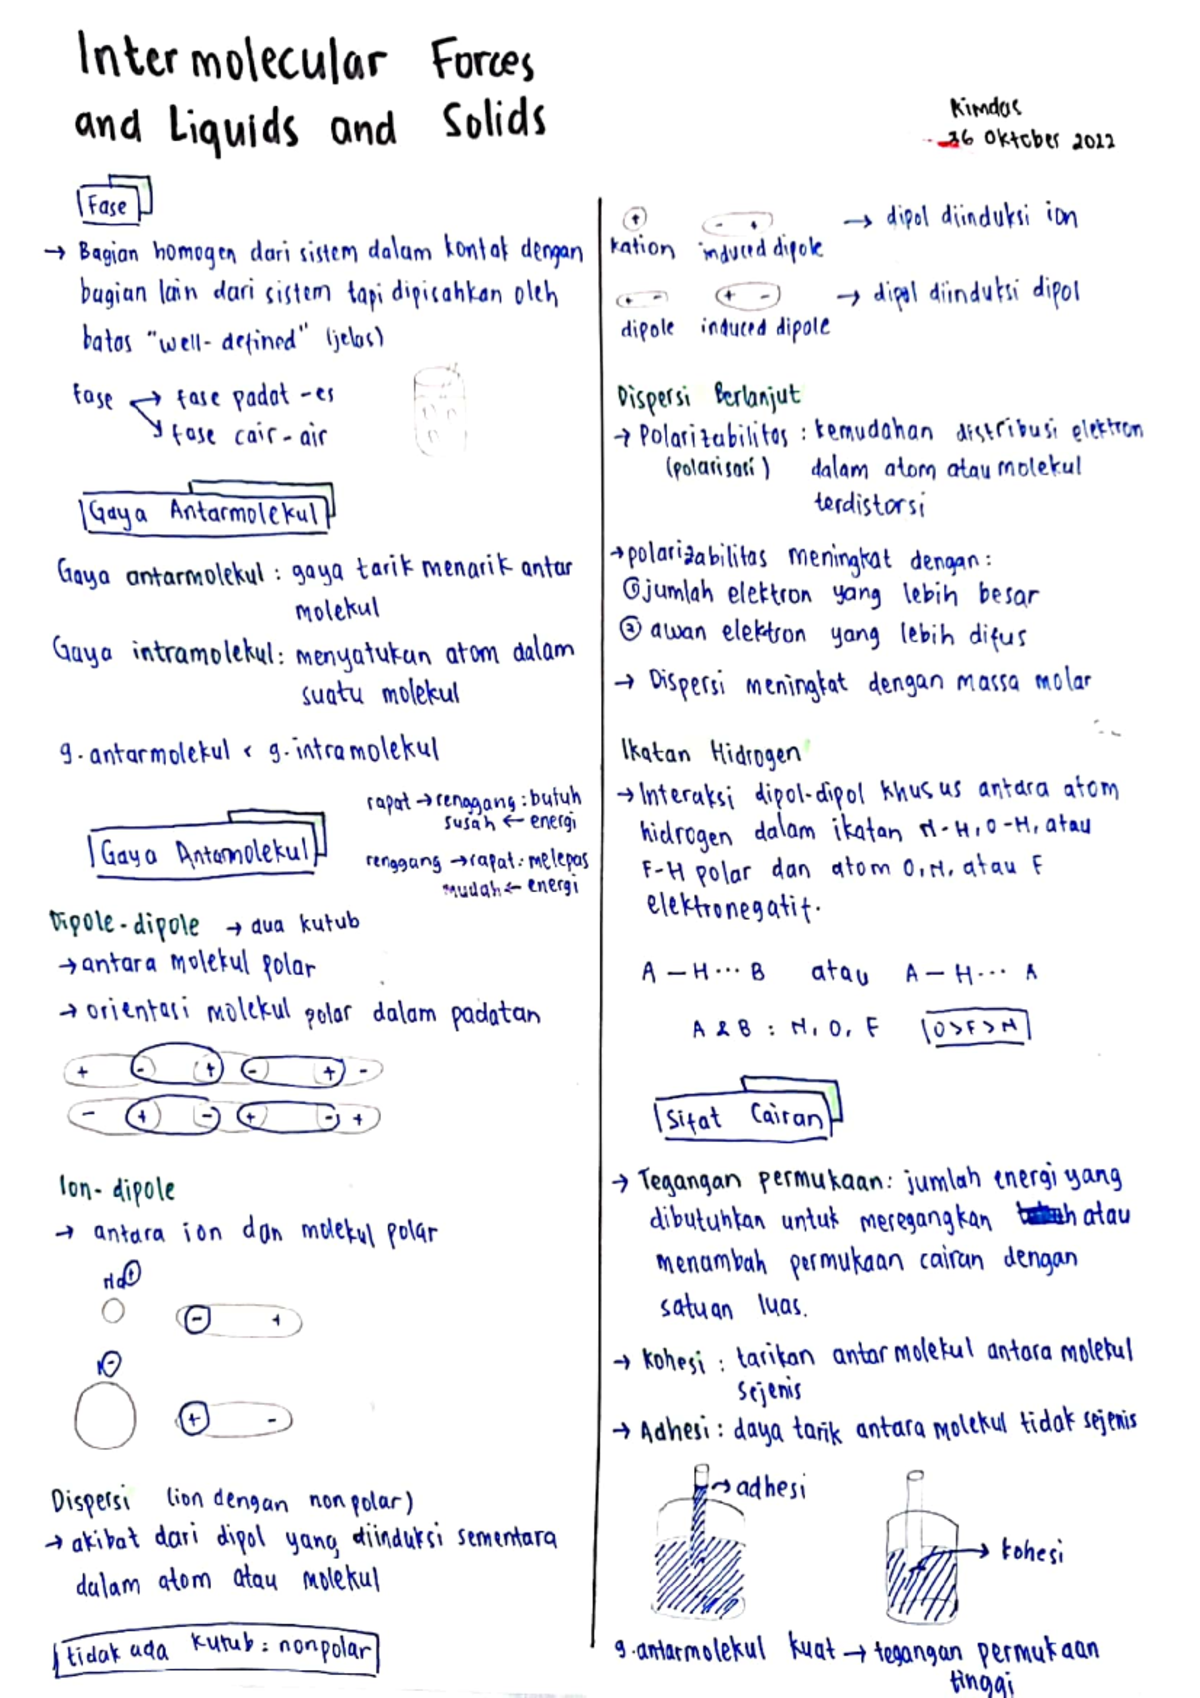 Intermolecular Forces
and Liquids and Solids
Kimdas
26 Oktober 2022
Fase
→ Bagian homogen dari sistem dalam kontak dengan
bagian lain dari sistem tapi dipisahkan oleh
batas "well-defined" (jelas)
Fase → fase padat - es
↘ fase cair - air
Gaya Antarmolekul
Gaya antarmolekul : gaya tarik menarik antar
molekul
Gaya intramolekul : menyatukan atom dalam
suatu molekul
g. antarmolekul < g. intramolekul
rapat → renggang : butuh
susah ← energi
renggang → rapat : melepas
mudah ← energi
Gaya Antarmolekul
Dipole-dipole → dua kutub
→ antara molekul polar
→ orientasi molekul polar dalam padatan
+ - + - + -
- + - + - +
Ion-dipole
→ antara ion dan molekul polar
+
- +
-
+ -
Dispersi (ion dengan nonpolar)
→ akibat dari dipol yang diinduksi sementara
dalam atom atau molekul
tidak ada kutub : nonpolar
+ - + → dipol diinduksi ion
kation induced dipole
+ - + - → dipol diinduksi dipol
dipole induced dipole
Dispersi Berlanjut
→ Polarizabilitas : kemudahan distribusi elektron
(polarisasi) dalam atom atau molekul
terdistorsi
→ polarizabilitas meningkat dengan :
① jumlah elektron yang lebih besar
② awan elektron yang lebih difus
→ Dispersi meningkat dengan massa molar
Ikatan Hidrogen
→ Interaksi dipol-dipol khusus antara atom
hidrogen dalam ikatan N-H, O-H, atau
F-H polar dan atom O, N, atau F
elektronegatif.
A — H ... B atau A — H ... A
A & B : N, O, F O > F > N
Sifat Cairan
→ Tegangan permukaan : jumlah energi yang
dibutuhkan untuk meregangkan atau
menambah permukaan cairan dengan
satuan luas.
→ Kohesi : tarikan antarmolekul antara molekul
sejenis
→ Adhesi : daya tarik antara molekul tidak sejenis
→ adhesi
→ kohesi
g. antarmolekul kuat → tegangan permukaan
tinggi